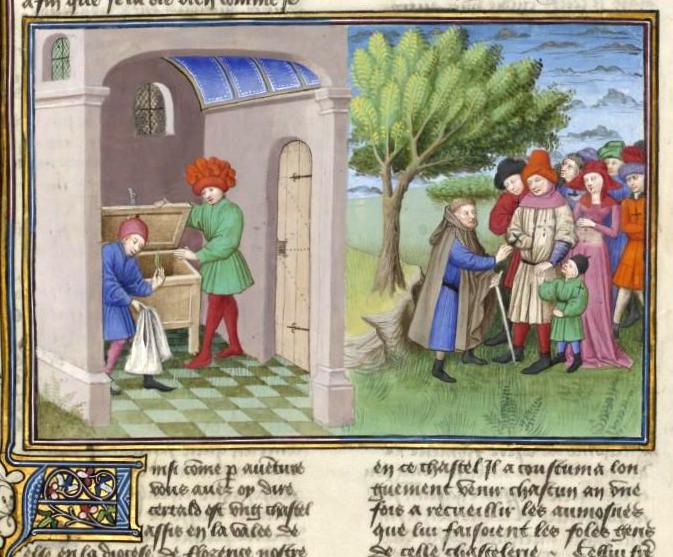 afin que je la die bien comme je
Ainsi come p aventure
vous avez oy dire
certald est vng chastel
assis en la valee de
en la diocese de florence nostre
en ce chastel Il a coustuma lon
guement venir chascun an vne
fois a recueillir les aumosnes
que lui faisoient les foles gens
de celle chastelerie